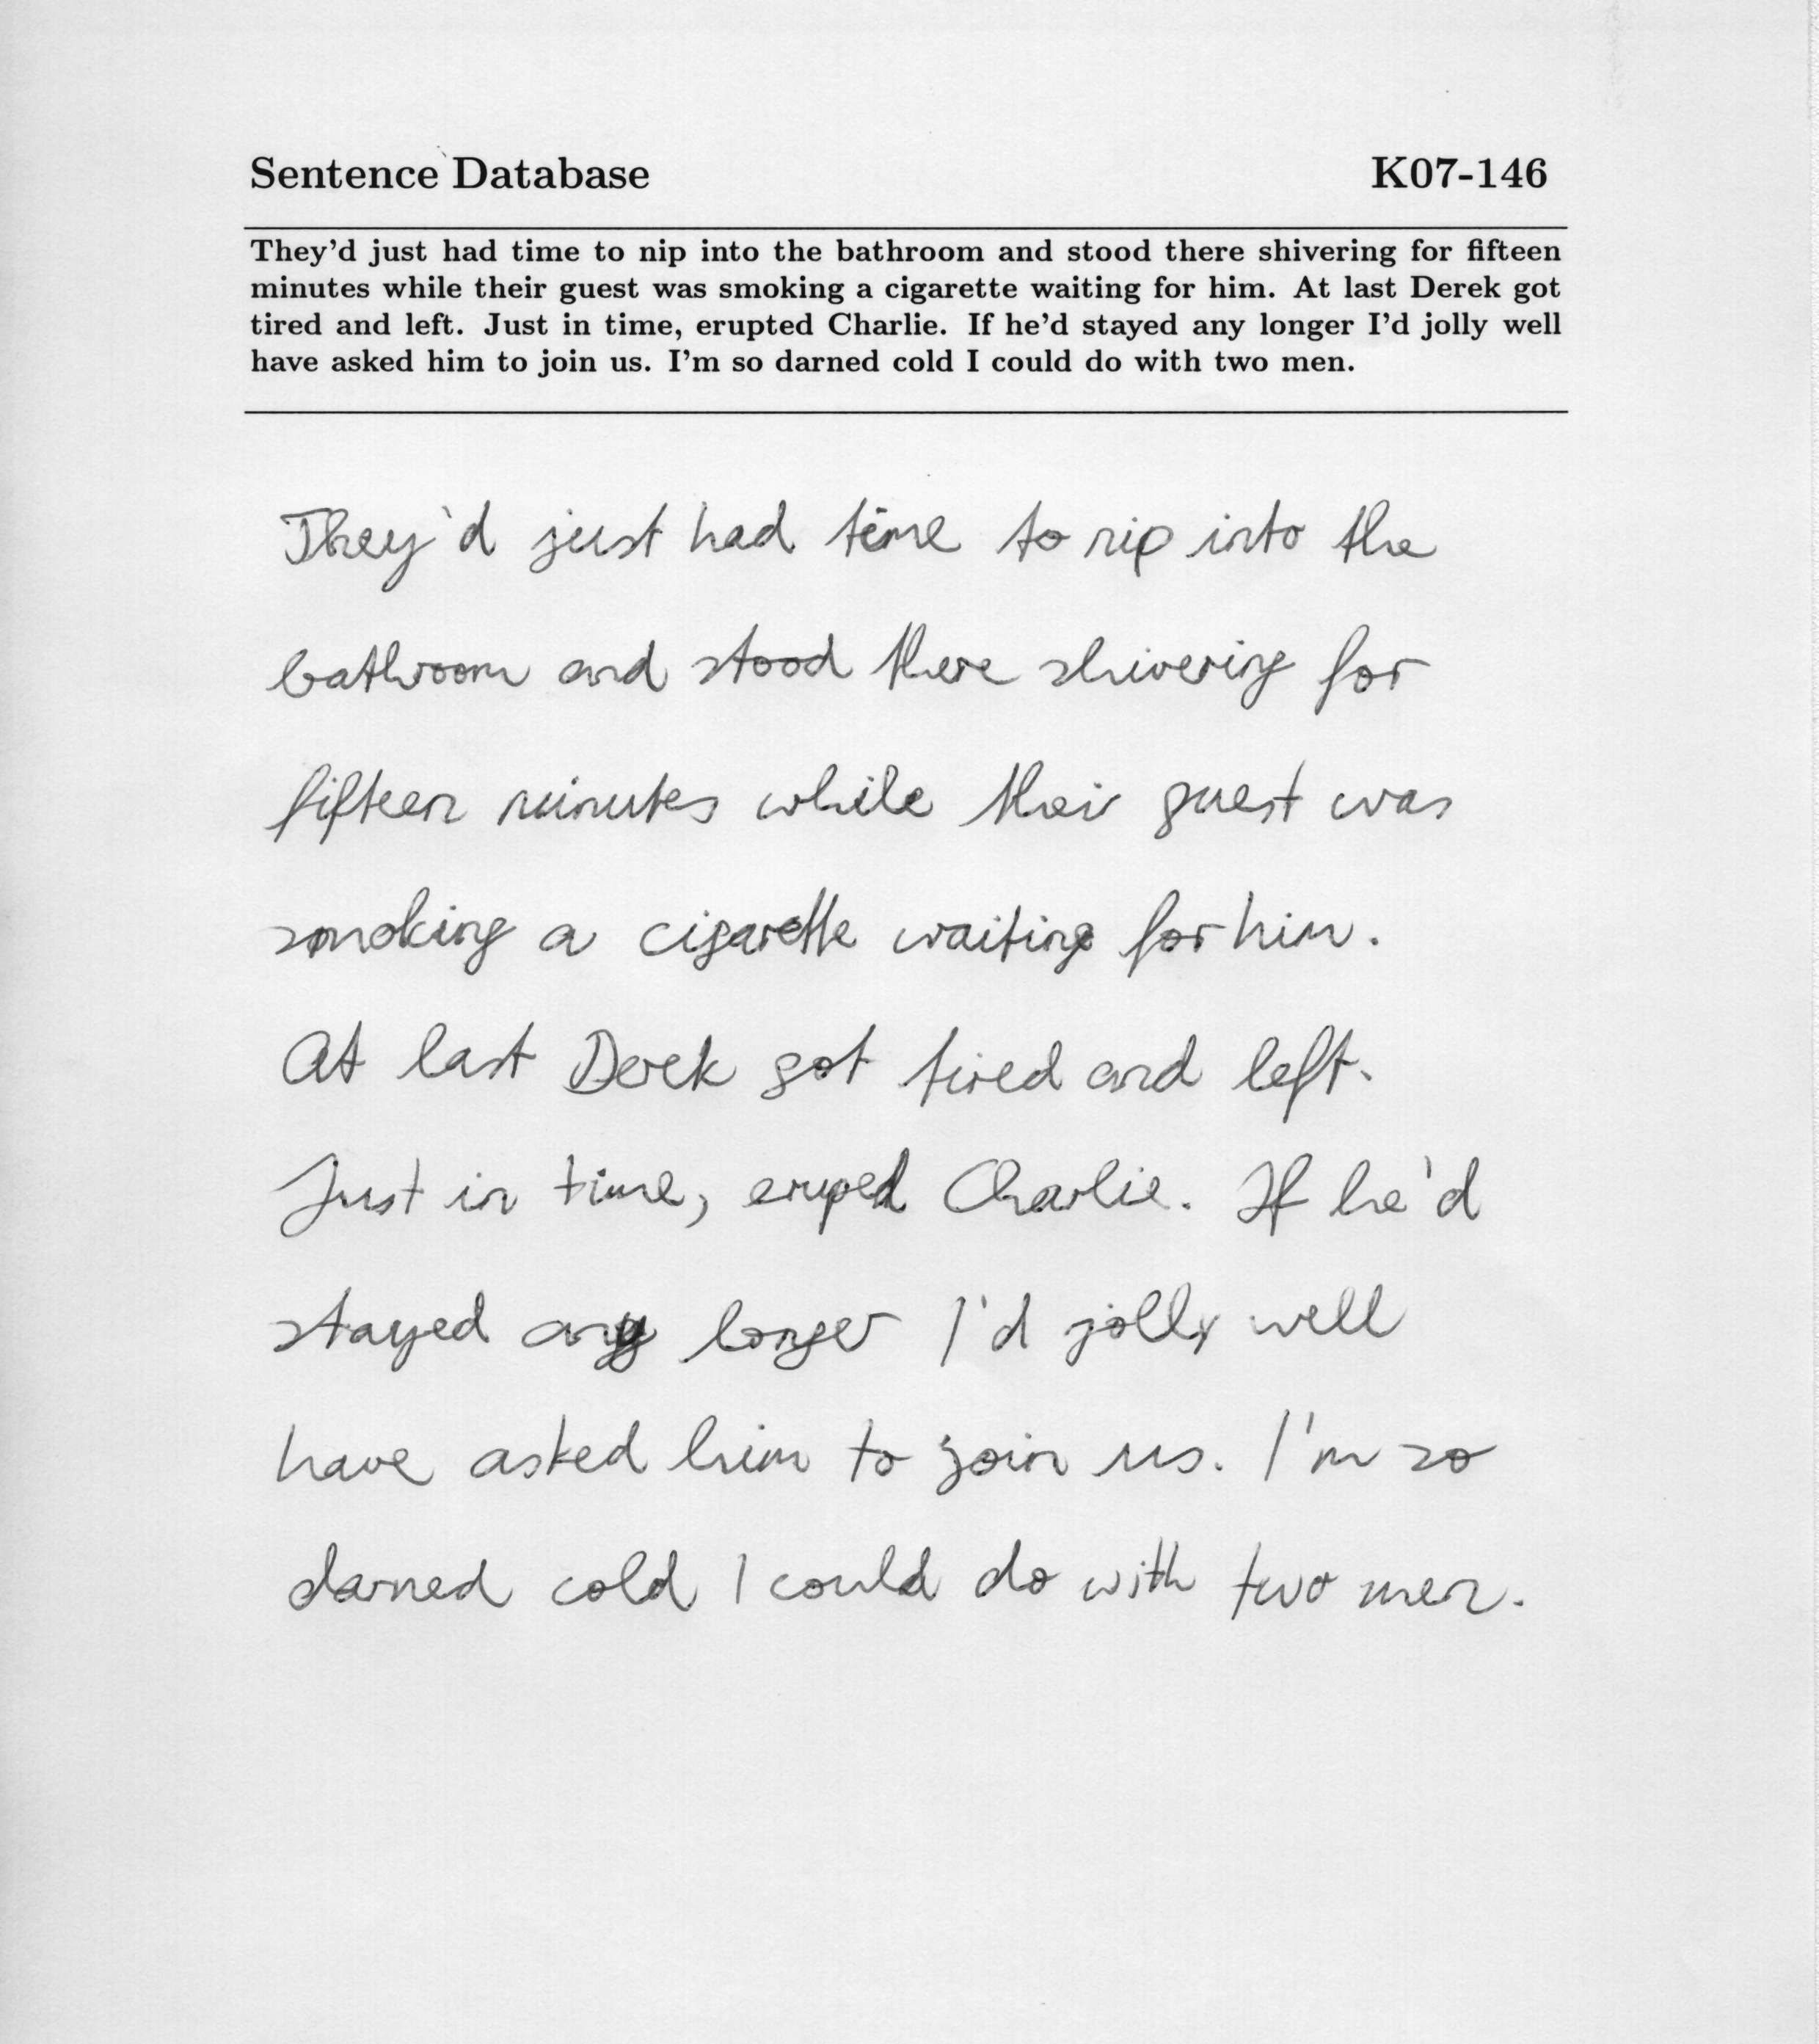 Sentence Database K07-146
They'd just had time to nip into the bathroom and stood there shivering for fifteen
minutes while their guest was smoking a cigarette waiting for him. At last Derek got
tired and left. Just in time, erupted Charlie. If he'd stayed any longer I'd jolly well
have asked him to join us. I'm so darned cold I could do with two men.
They'd just had time to nip into the
bathroom and stood there shivering for
fifteen minutes while their guest was
smoking a cigarette waiting for him.
At last Derek got tired and left.
Just in time, eruped Charlie. If he'd
stayed any longer I'd jolly well
have asked him to join us. I'm so
darned cold I could do with two men.